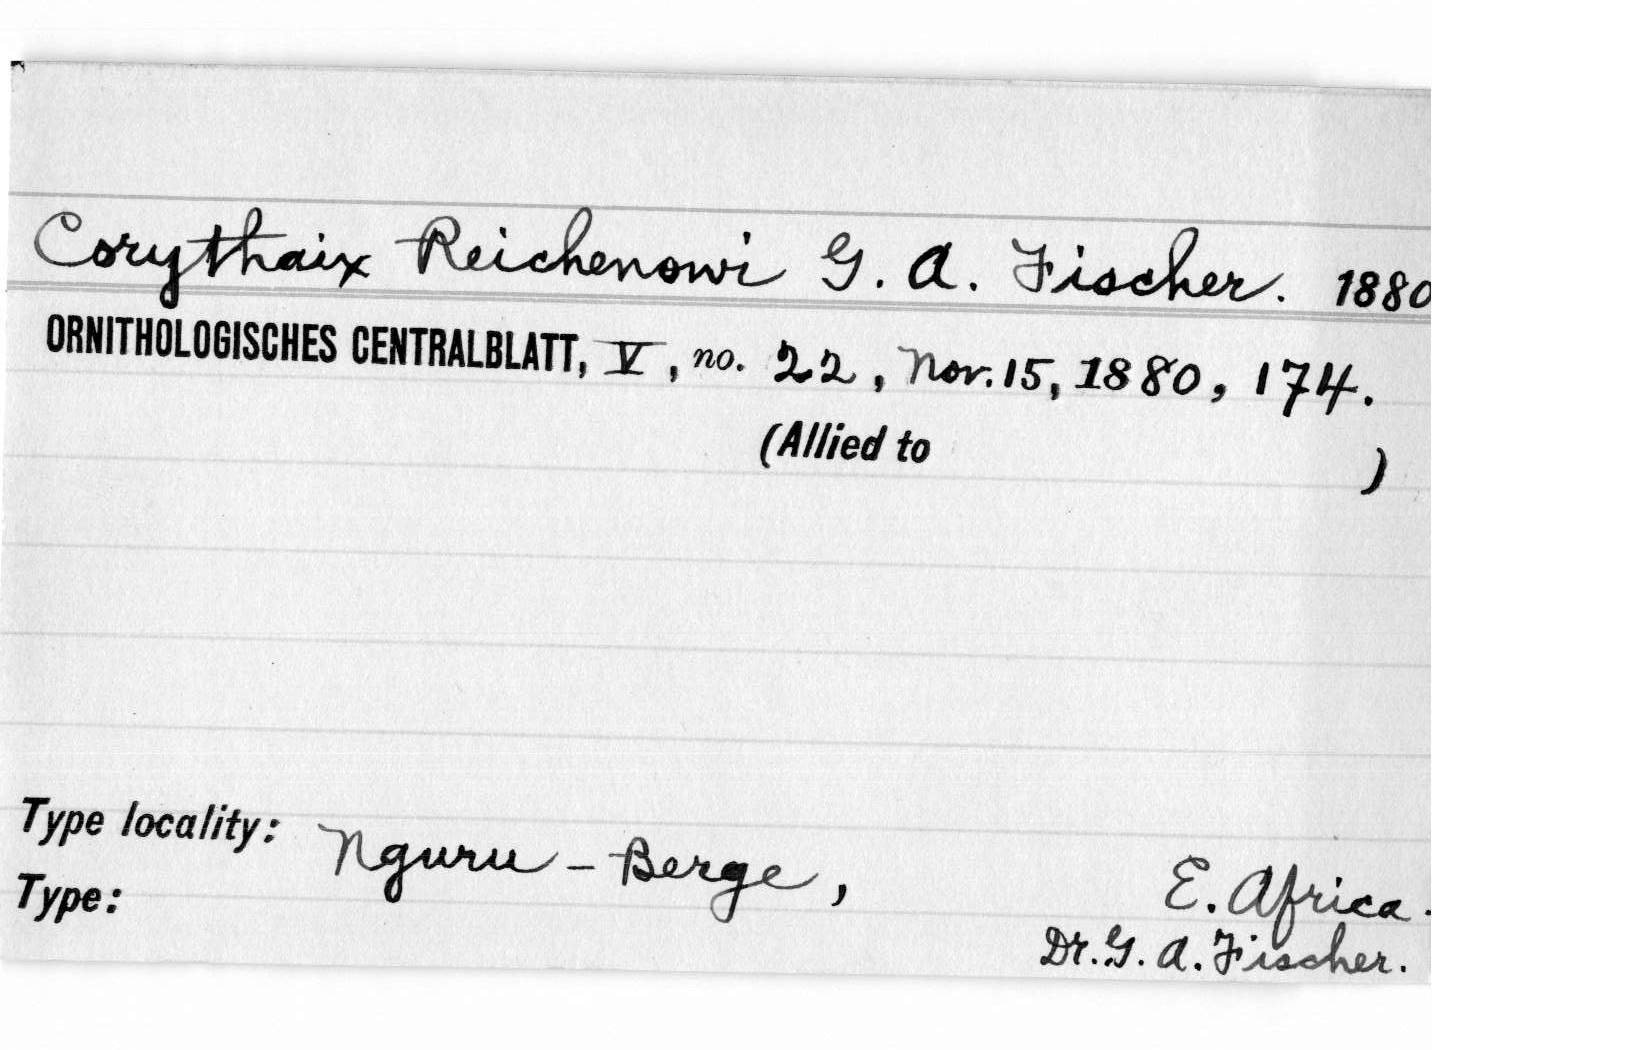 Corythaix Reichenowi G. A. Fischer. 1880
ORNITHOLOGISCHES CENTRALBLATT, V, no. 22, Nov. 15, 1880, 174.
(Allied to )
Type locality: Nguru-Berge, E. Africa.
Type: Dr. G. A. Fischer.